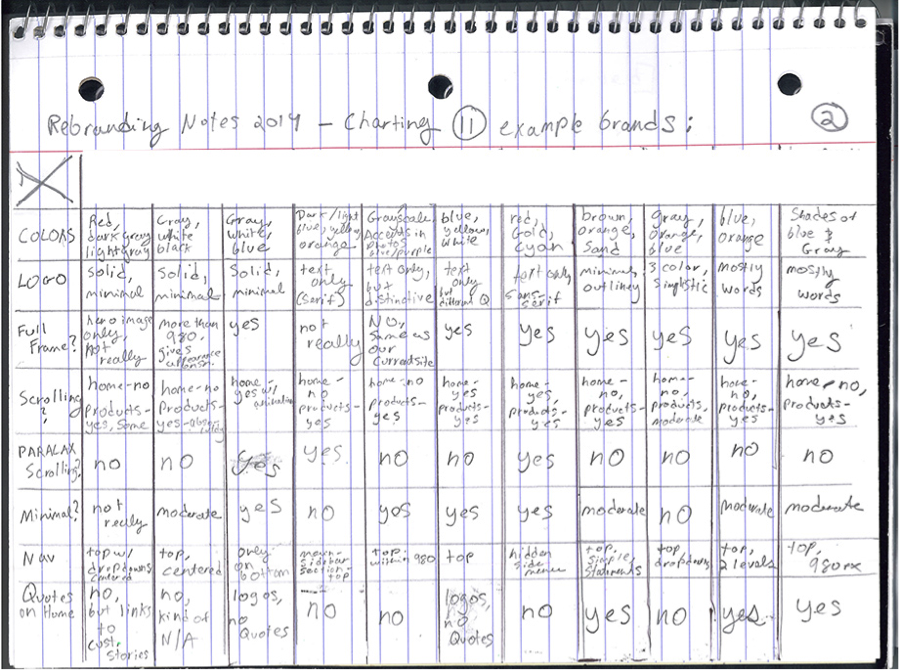 Rebranding Notes 2014 - Charting 11 example brands: 2
COLORS Red, dark gray light gray | Gray, white black | Gray, white, blue | Dark/light blue, yellow, orange | Grayscale, Accents in photos blue/purple | blue, yellow, white | red, Gold, cyan | brown, orange, sand | gray, orange, blue | blue, orange | Shades of blue & Gray
LOGO solid, minimal | Solid, minimal | Solid, minimal | text only (serif) | text only, but distinctive | text only but different Q | text only sans-serif | minimal, outliney | 3 color, Simplistic | mostly words | mostly words
Full Frame? hero image only, not really | more than 980, gives appearance | yes | not really | NO, Same as our current site | yes | yes | yes | yes | yes | yes
Scrolling? home-no products-yes, some | home-no products-yes | home-yes w/ | home-no products-yes | home-no products-yes | home-yes products-yes | home-yes, products-yes | home-no, products-yes | home-no, products, moderate | home-no, products-yes | home-no, products-yes
PARALAX Scrolling? no | no | yes | yes | no | no | yes | no | no | no | no
Minimal? not really | moderate | yes | no | yes | yes | yes | moderate | no | moderate | moderate
Nav top w/ dropdowns centered | top, centered | only on bottom | sidebar section-top | top-within 980 | top | hidden side menu | top, simple, statements | top/dropdowns | top, 2 levels | top, 980px
Quotes on Home no, but links to cust. stories | no, kind of N/A | logos, no Quotes | no | no | logos, no Quotes | no | yes | no | yes | yes